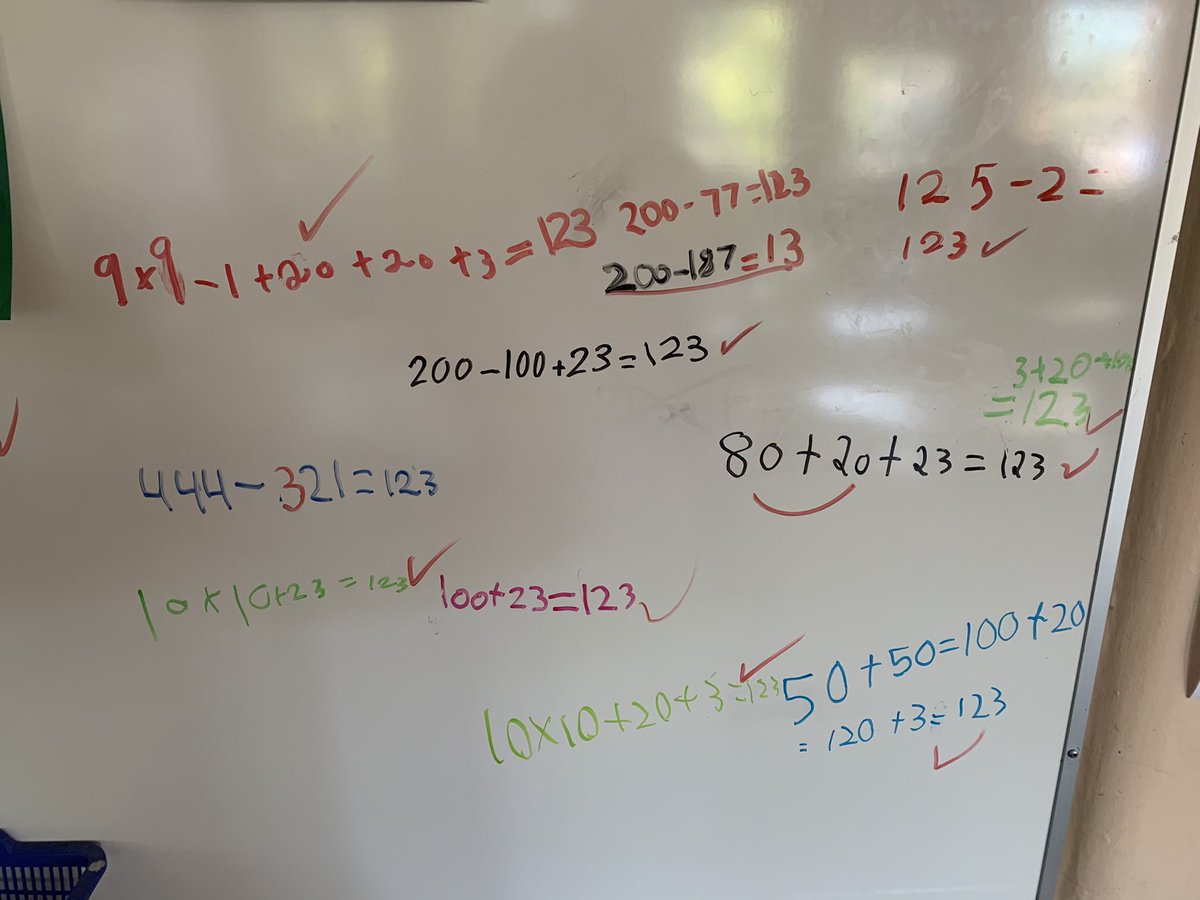 9x9-1+20+20+3=123
200-77=123
200-187=13
125-2=
123
200-100+23=123
3+20+100
=123
80+20+23=123
444-321=123
10x10+23=123
100+23=123
10x10+20+3=123
50+50=100+20
=120+3=123